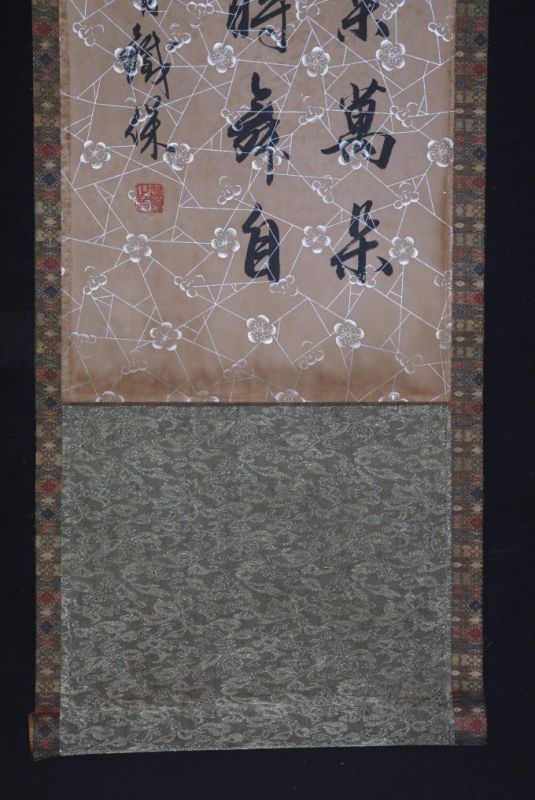 朵萬朵
時舞自
鐵保